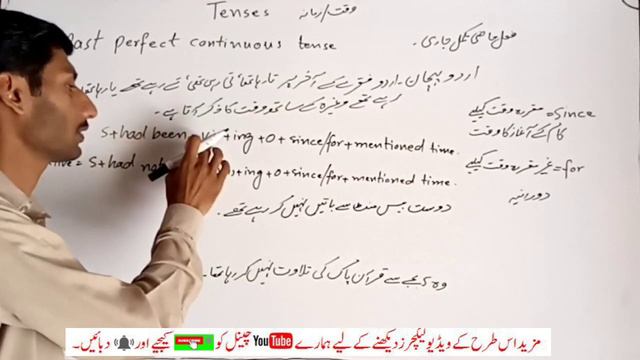 Tenses وقت/زمانہ
Past perfect continuous tense فعل ماضی مکمل جاری۔
اردو پہچان۔ اردو فقرے کے آخر پر تا رہا تھا، تی رہی تھی، تے رہے تھے یا رہا تھا
رہے تھے وغیرہ کے ساتھ وقت کا ذکر آتا ہے۔
since = مقررہ وقت کیلئے
S+had been +ing +O + since/for + mentioned time.
کام کے آغاز کا وقت
for = غیر مقررہ وقت کیلئے
= S+had not +ing +O+since/for+ mentioned time.
دورانیہ
دوست بیس منٹ سے باتیں نہیں کر رہے تھے۔
وہ بجے سے قرآن پاک کی تلاوت نہیں کر رہا تھا۔
مزید اس طرح کے ویڈیو لیکچرز دیکھنے کے لیے ہمارے YouTube چینل کو کیجیے اور دبائیں۔